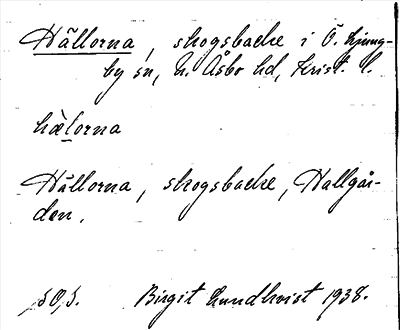 Hällorna, skogsbacke i Ö. Ljung-
by sn, N. Åsbo hd, Krist. l.
hælorna
Hällorna, skogsbacke, Hallgår-
den.
Birgit Lundkvist 1938.